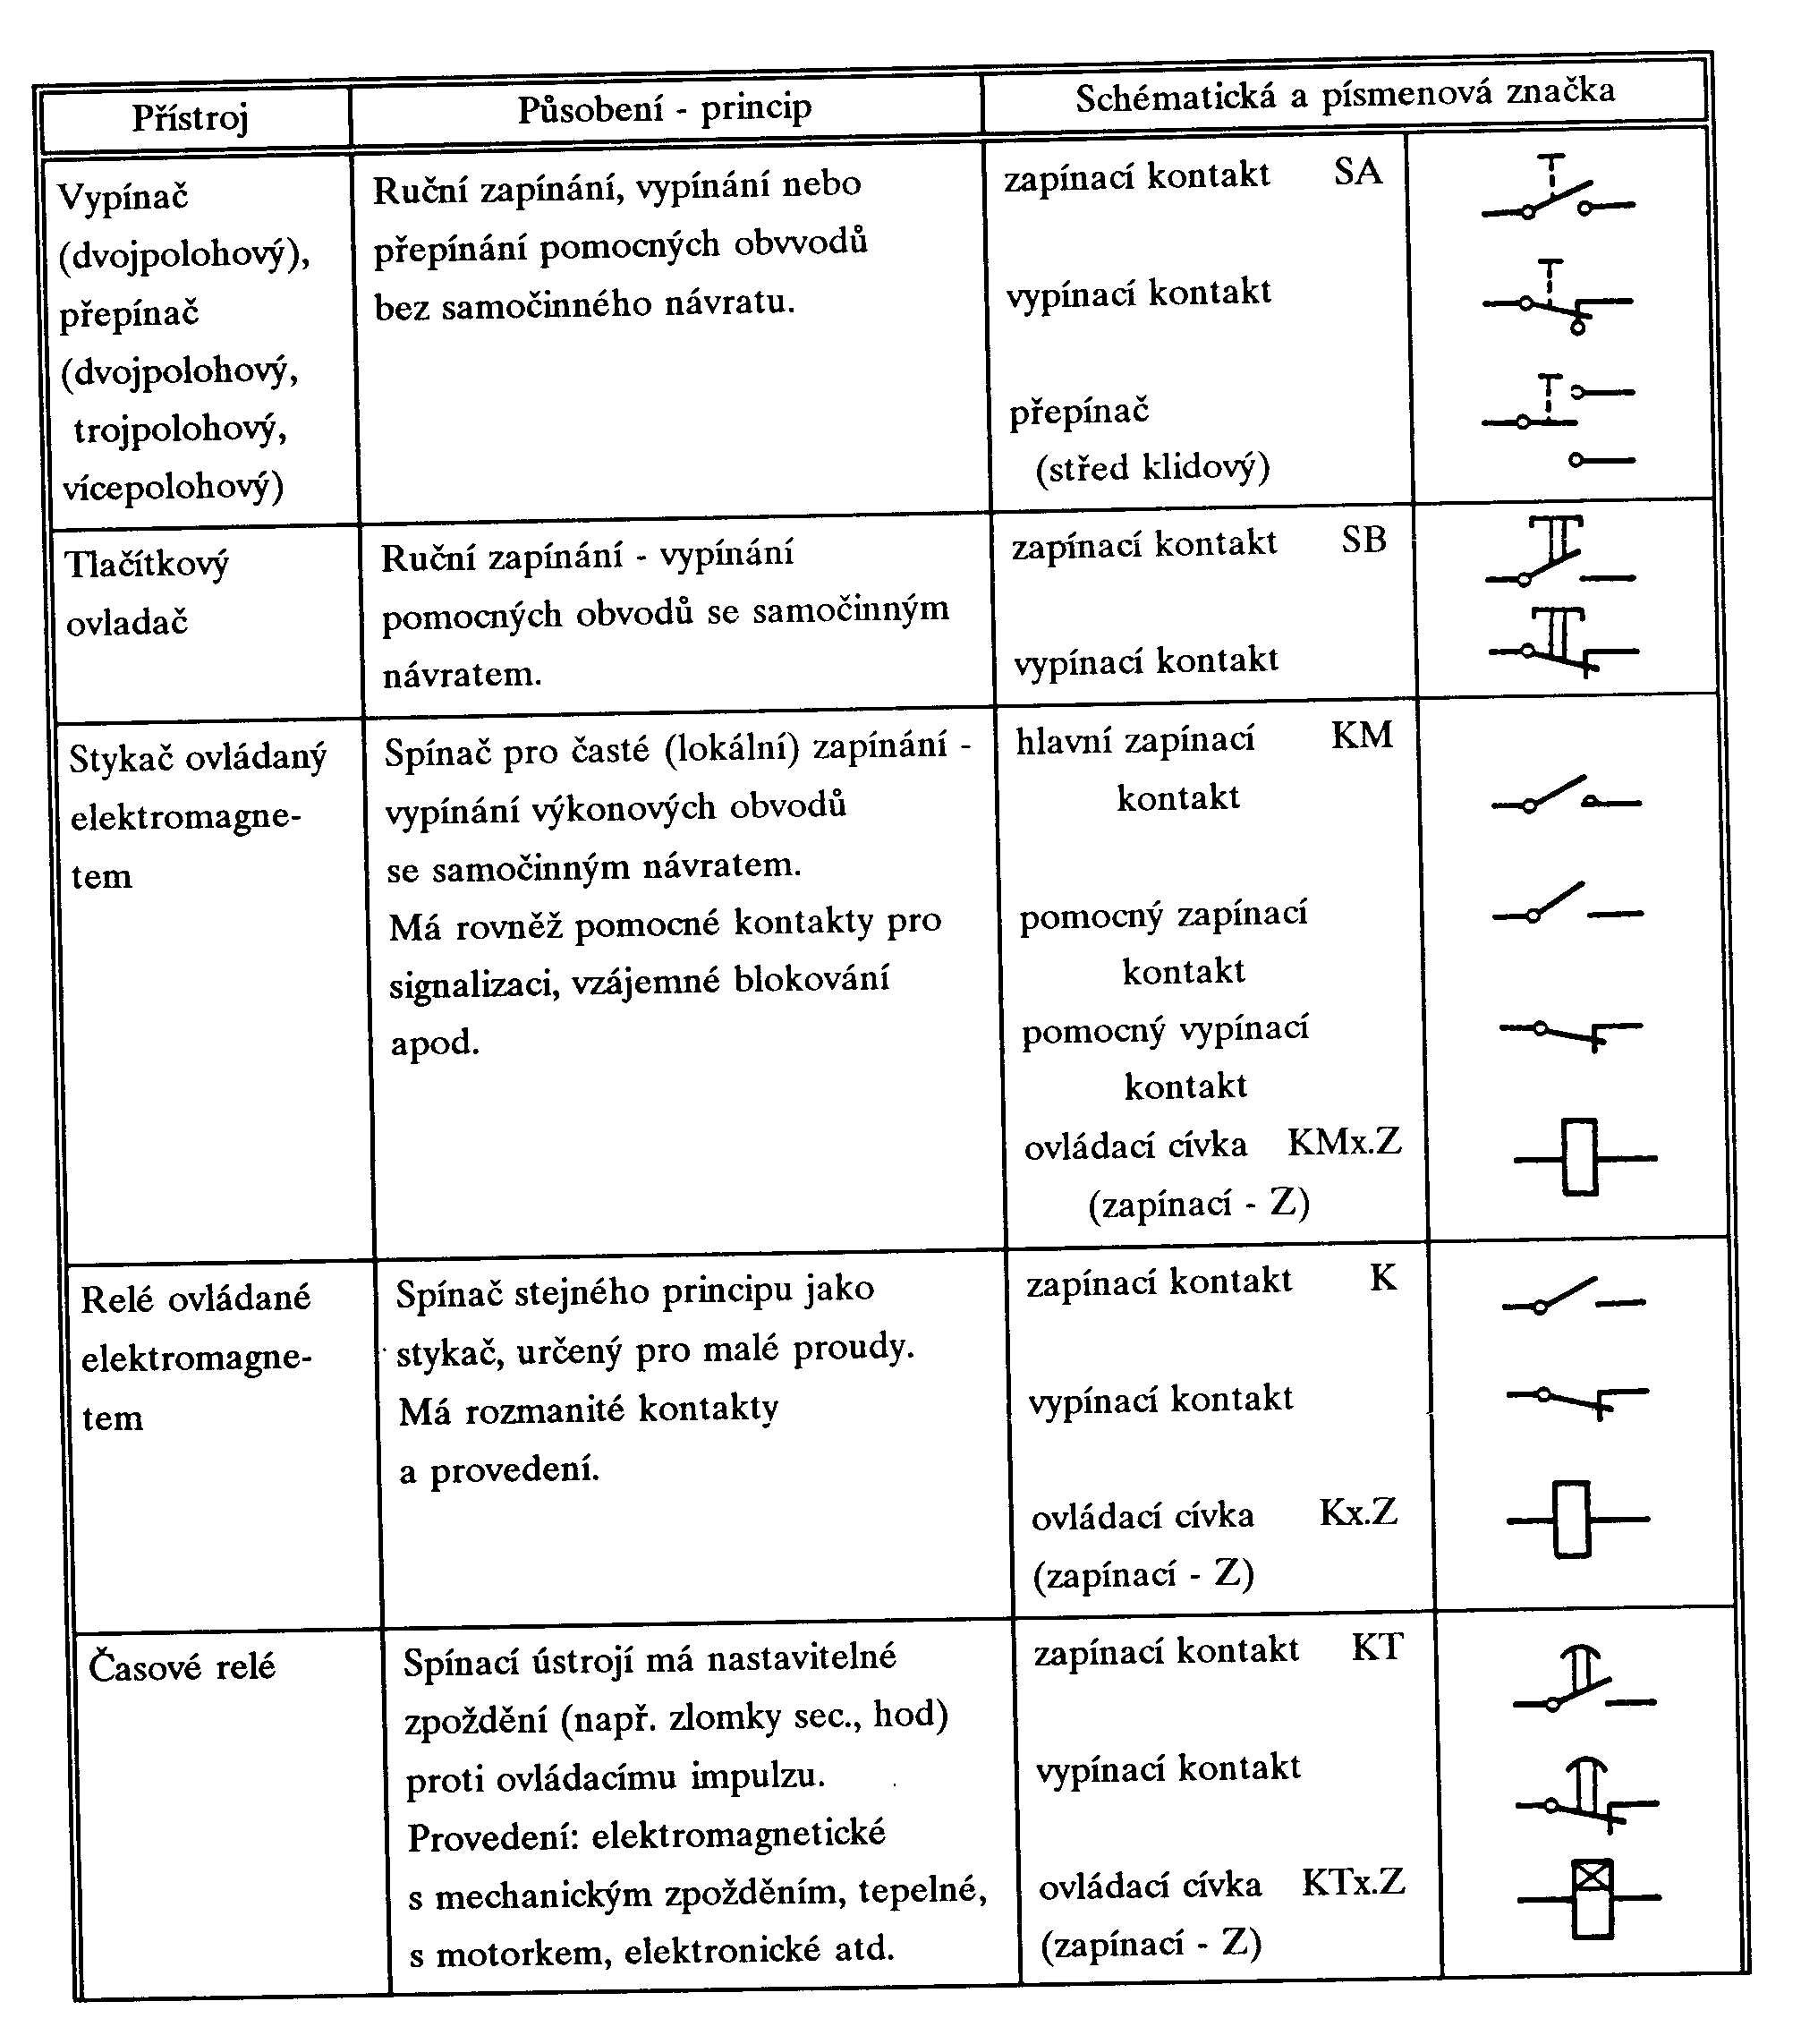 Přístroj
Působení - princip
Schématická a písmenová značka
Vypínač
(dvojpolohový),
přepínač
(dvojpolohový,
trojpolohový,
vícepolohový)
Ruční zapínání, vypínání nebo
přepínání pomocných obvvodů
bez samočinného návratu.
zapínací kontakt SA
vypínací kontakt
přepínač
(střed klidový)
Tlačítkový
ovladač
Ruční zapínání - vypínání
pomocných obvodů se samočinným
návratem.
zapínací kontakt SB
vypínací kontakt
Stykač ovládaný
elektromagne-
tem
Spínač pro časté (lokální) zapínání -
vypínání výkonových obvodů
se samočinným návratem.
Má rovněž pomocné kontakty pro
signalizaci, vzájemné blokování
apod.
hlavní zapínací KM
kontakt
pomocný zapínací
kontakt
pomocný vypínací
kontakt
ovládací cívka KMx.Z
(zapínací - Z)
Relé ovládané
elektromagne-
tem
Spínač stejného principu jako
stykač, určený pro malé proudy.
Má rozmanité kontakty
a provedení.
zapínací kontakt K
vypínací kontakt
ovládací cívka Kx.Z
(zapínací - Z)
Časové relé
Spínací ústrojí má nastavitelné
zpoždění (např. zlomky sec., hod)
proti ovládacímu impulzu.
Provedení: elektromagnetické
s mechanickým zpožděním, tepelné,
s motorkem, elektronické atd.
zapínací kontakt KT
vypínací kontakt
ovládací cívka KTx.Z
(zapínací - Z)